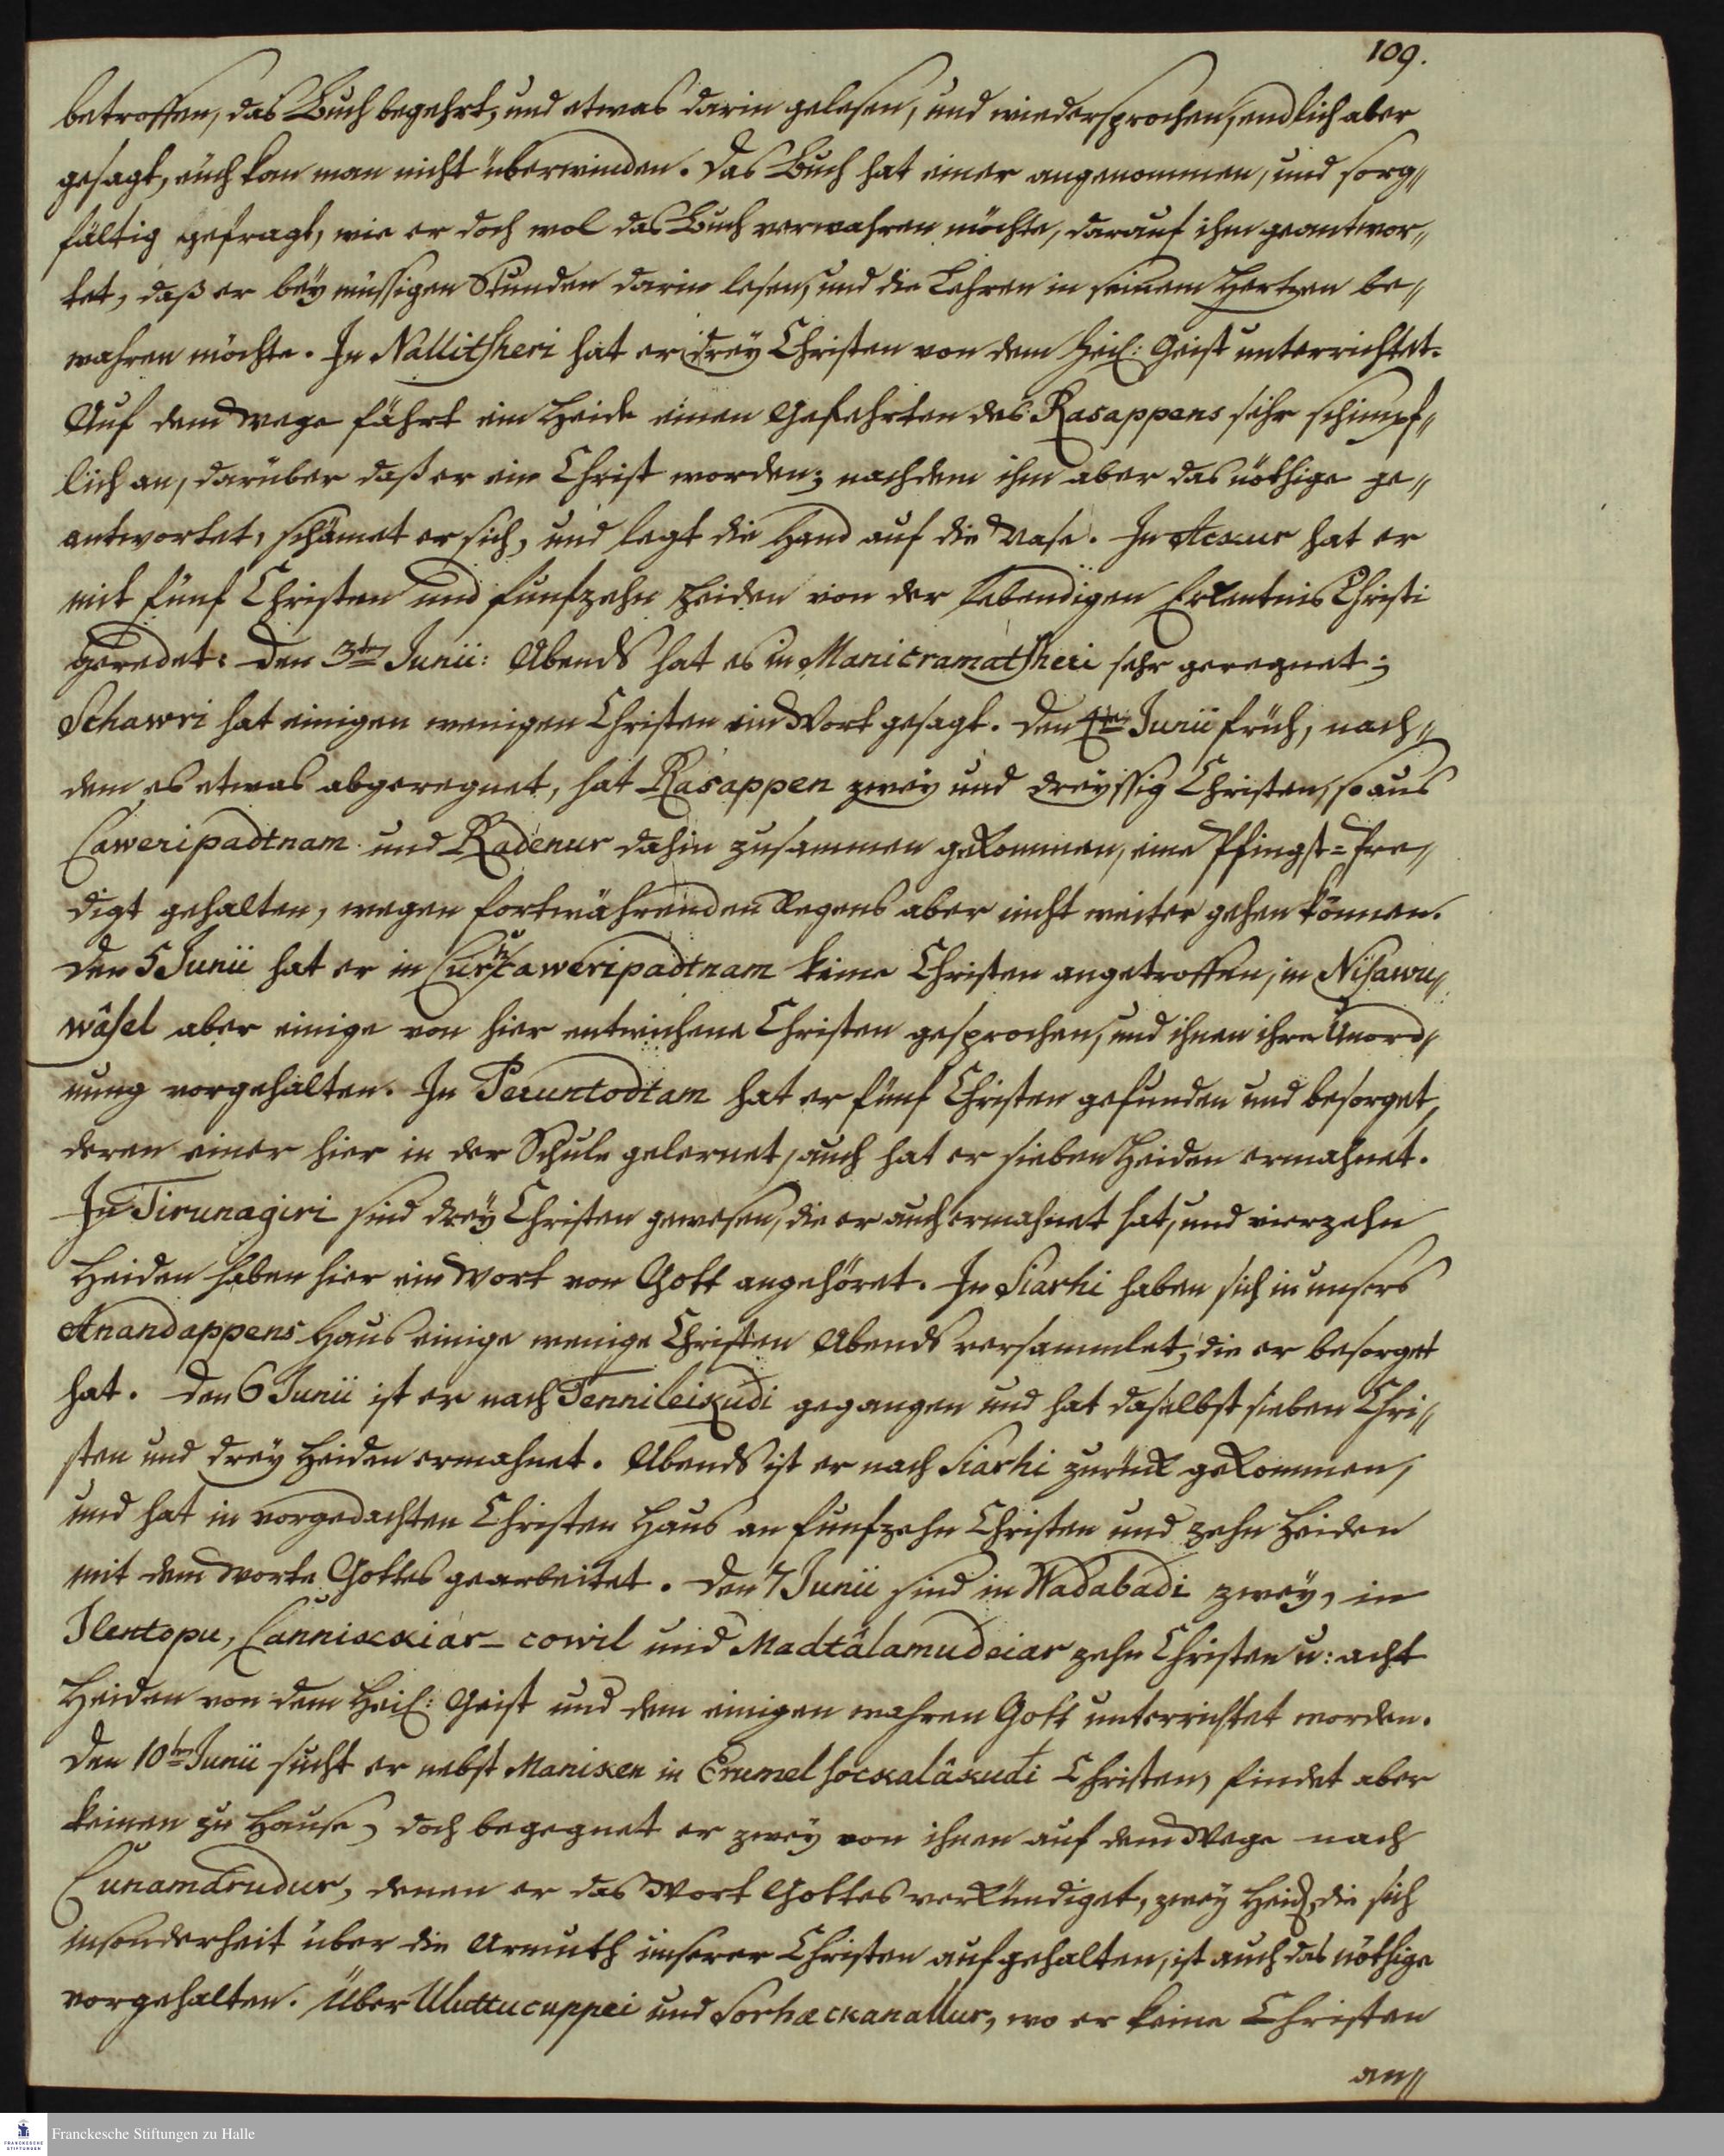 109.
betroffen, das Buch begehrt, und etwas darin gelesen, und wiedersprochen, endlich aber
gesagt, euch kan man nicht überwinden. Das Buch hat einer angenommen, und sorg„
fältig gefragt, wie er doch wol das Buch verwahren möchte, darauf ihm geantwor„
tet, daß er bey müssigen Stunden darin lesen, und die Lehren in seinem Hertzen be„
wahren möchte. In Nallitscheri hat er drey Christen von dem Heil: Geist unterrichtet.
Auf dem Wege fährt ein Heide einen Gefehrten des Rasappens sehr schimpf„
lich an, darüber daß er ein Christ worden; nachdem ihm aber das nöthige ge„
antwortet, schämet er sich, und legt die Hand auf die Nase. In Ackur hat er
mit fünf Christen und funfzehn Heiden von der lebendigen Erkentnis Christi
geredet. Den 3ten Junii: Abends hat es in Manicramatscheri sehr geregnet;
Schawri hat einigen wenigen Christen ein Wort gesagt. Den 4ten Junii früh, nach„
dem es etwas abgeregnet, hat Rasappen zwey und dreyssig Christen, so aus
Caweripadtnam und Radenur dahin zusammen gekommen, eine Pfingst=Pre„
digt gehalten, wegen fortwährenden Regens aber nicht weiter gehen können.
Den 5 Junii hat er in caweripadtnam keine Christen angetroffen, in Nisawu„
wâsel aber einige von hier entwichene Christen gesprochen, und ihnen ihre Unord„
nung vorgehalten. In Peruntodtam hat er fünf Christen gefunden und besorget,
deren einer hier in der Schule gelernet, auch hat er sieben Heiden ermahnet.
In Tirunagiri sind drey Christen gewesen, die er auch ermahnet hat, und vierzehn
Heiden haben hier ein Wort von Gott angehöret. In Siarhi haben sich in unsers
Anandappens Haus einige wenige Christen Abends versammlet, die er besorget
hat. Den 6 Junii ist er nach Tennileikudi gegangen und hat daselbst sieben Chri„
sten und drey Heiden ermahnet. Abends ist er nach Siarhi zurück gekommen,
und hat in vorgedachten Christen Haus an funfzehn Christen und zehn Heiden
mit dem Worte Gottes gearbeitet. Den 7 Junii sind in Wadabadi zwey, in
Ilentopu, Cannickiar-cowil und Madtâlamudeiar zehn Christen u: acht
Heiden von dem Heil: Geist und dem einigen wahren Gott unterrichtet worden.
Den 10ten Junii sucht er nebst Maniken in Erumelsockalâkudi Christen, findet aber
keinen zu Hause, doch begegnet er zwey von ihnen auf dem Wege nach
Cunamdrudur, denen er das Wort Gottes verkündiget, zwey Heid. die sich
insonderheit über die Armuth unserer Christen aufgehalten, ist auch das nöthige
vorgehalten. Über Uluttucuppei und Sorhackanallur, wo er keine Christen
an„
Franckesche Stiftungen zu Halle
FRANCKESCHE
STIFTUNGEN